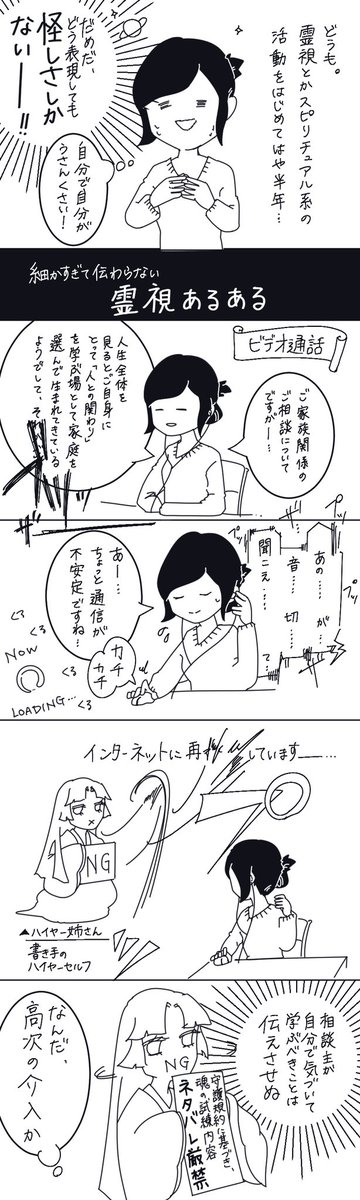 どうも。
霊視とかスピリチュアル系の
活動をはじめてはや半年…
だめだ、
どう表現しても
怪しさしか
ないーー!!
自分で自分が
うさんくさい!
細かすぎて伝わらない
霊視あるある
ビデオ通話
ご家族関係の
ご相談について
ですが…
人生全体を
見るとご自身に
とって「人との関わり」
を学ぶ場として家庭を
選んで生まれてきている
ようでして、そ
プッ
ザ…
プッ
ザ…
プツ
あの……が…
音……切…
聞こえ……て…
あー…
ちょっと通信が
不安定ですね…
カチ
カチ
くる
くる
くる
NOW
LOADING…
インターネットに再
しています……
NG
▲ハイヤー姉さん
書き手の
ハイヤーセルフ
相談主が
自分で気づいて
学ぶべきことは
伝えさせぬ
NG
守護規約に基づき、
魂の試練内容
ネタバレ厳禁
なんだ、
高次の介入か